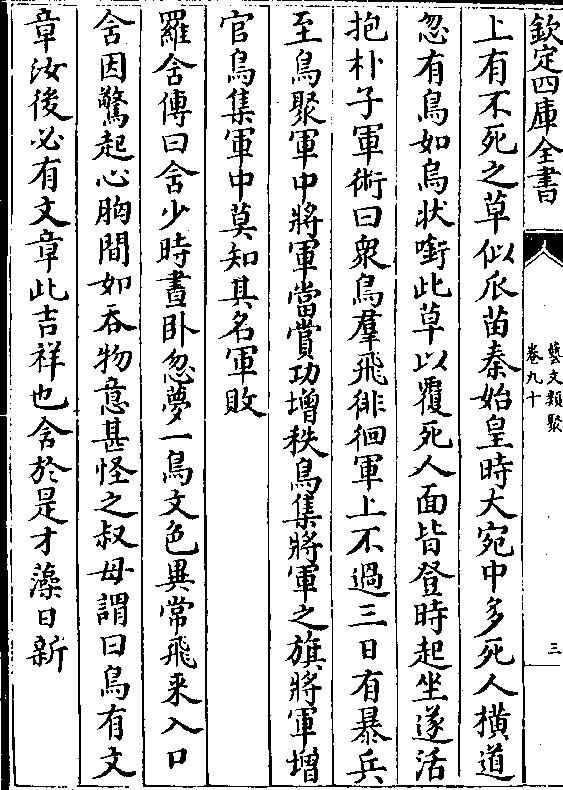 欽定四庫全書
藝文類聚
卷九十
三
上有不死之草似瓜苗秦始皇時大宛中多死人橫道
忽有鳥如烏狀銜此草以覆死人面皆登時起坐遂活
抱朴子軍術曰衆鳥羣飛徘徊軍上不過三日有暴兵
至鳥聚軍中將軍當賞功增秩鳥集將軍之旗將軍增
官鳥集軍中莫知其名軍敗
羅含傳曰含少時晝卧忽夢一鳥文色異常飛来入口
含因驚起心胸間如吞物意甚怪之叔母謂曰鳥有文
章汝後必有文章此吉祥也含於是才藻日新